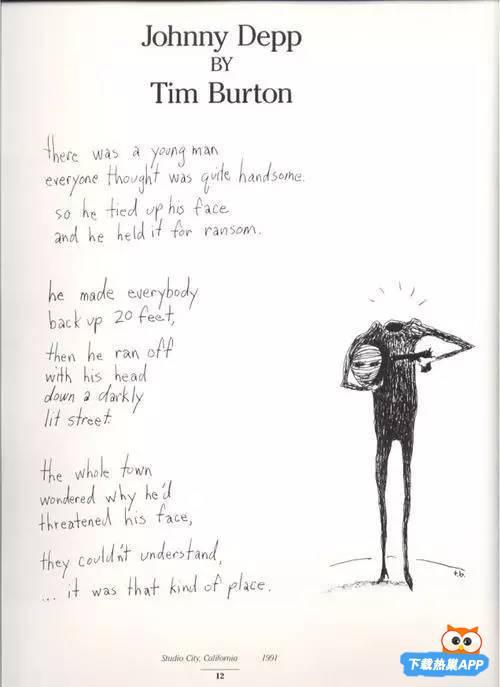 Johnny Depp
BY
Tim Burton
there was a young man
everyone thought was quite handsome.
so he tied up his face
and he held it for ransom.
he made everybody
back up 20 feet,
then he ran off
with his head
down a darkly
lit street.
the whole town
wondered why he'd
threatened his face,
they couldn't understand,
... it was that kind of place.
t.b.
Studio City, California 1991
12
下载热巢APP